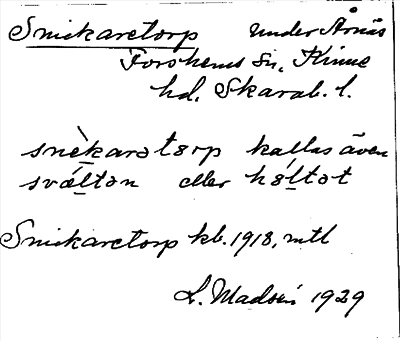 Snickaretorp under Årnäs
Forshems Sn, Kinne
hd. Skarab. l.
snèkaratɵrp kallas även
svæ̀ltan eller hɵ́ltat
Snickaretorp kb. 1918, mtl
L. Madsén 1929